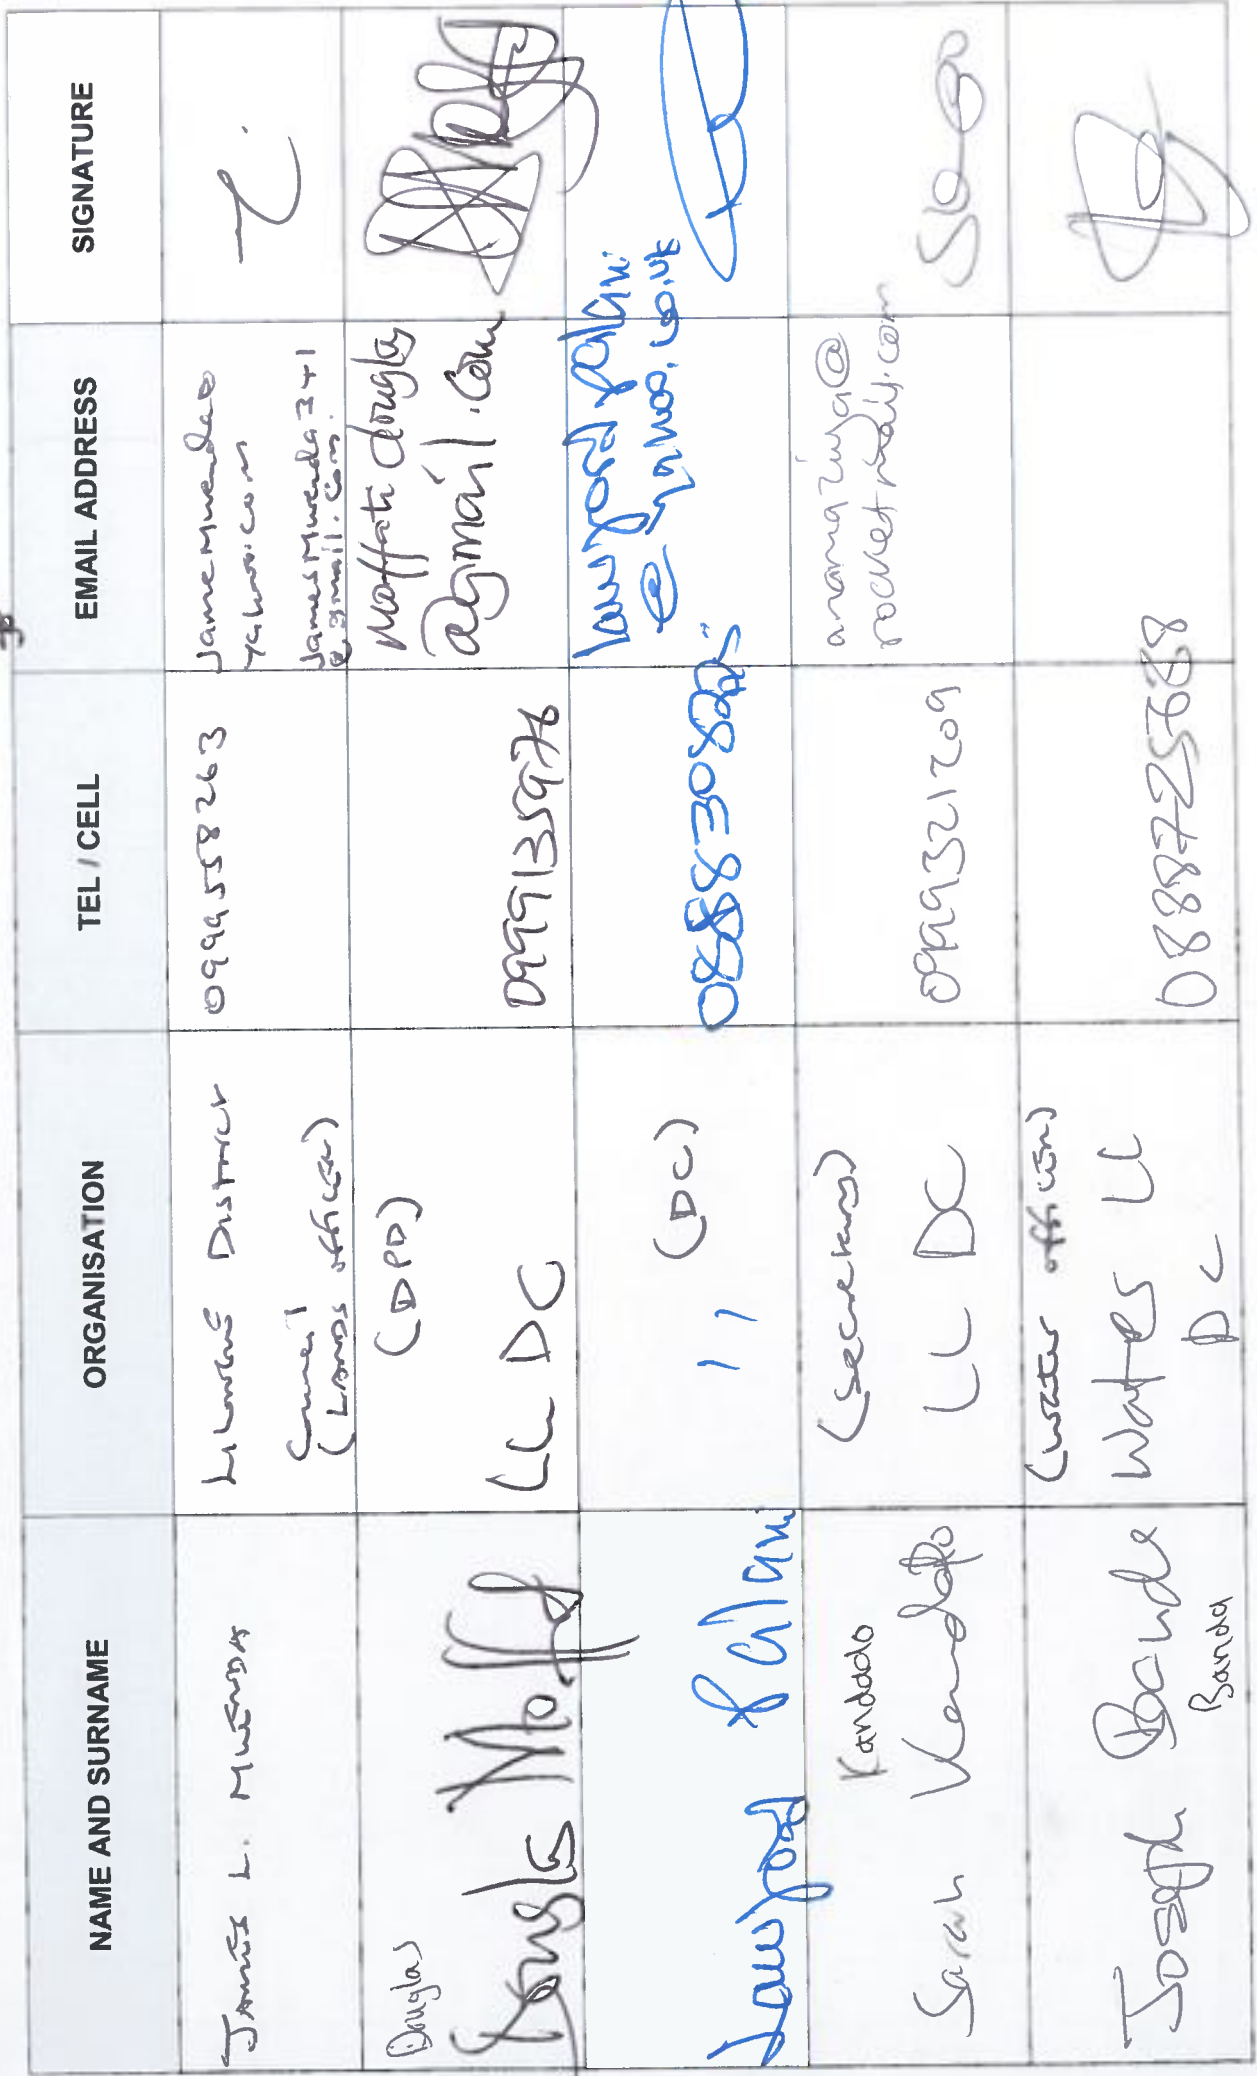 NAME AND SURNAME ORGANISATION TEL / CELL EMAIL ADDRESS SIGNATURE
JAMES L. MWENDA
LILONGWE DISTRICT
Council
(LANDS officer)
0999558263
JamesMwenda@
yahoo.com
JamesMwenda341
@gmail.com.
Douglas
Douglas Moffat
(DPD)
LL DC
0999135976
Moffatidouglas
@gmail.com
Lawford Palani
11 (DC)
0888308225
lawfordpalani
@yahoo.co.uk
Kandodo
Sarah Kandodo
(Secretary)
LL DC
0999321209
anamaziwa@
rocketmail.com
Joseph Banda
Banda
(water officer)
Waters LL
DC
0888725688